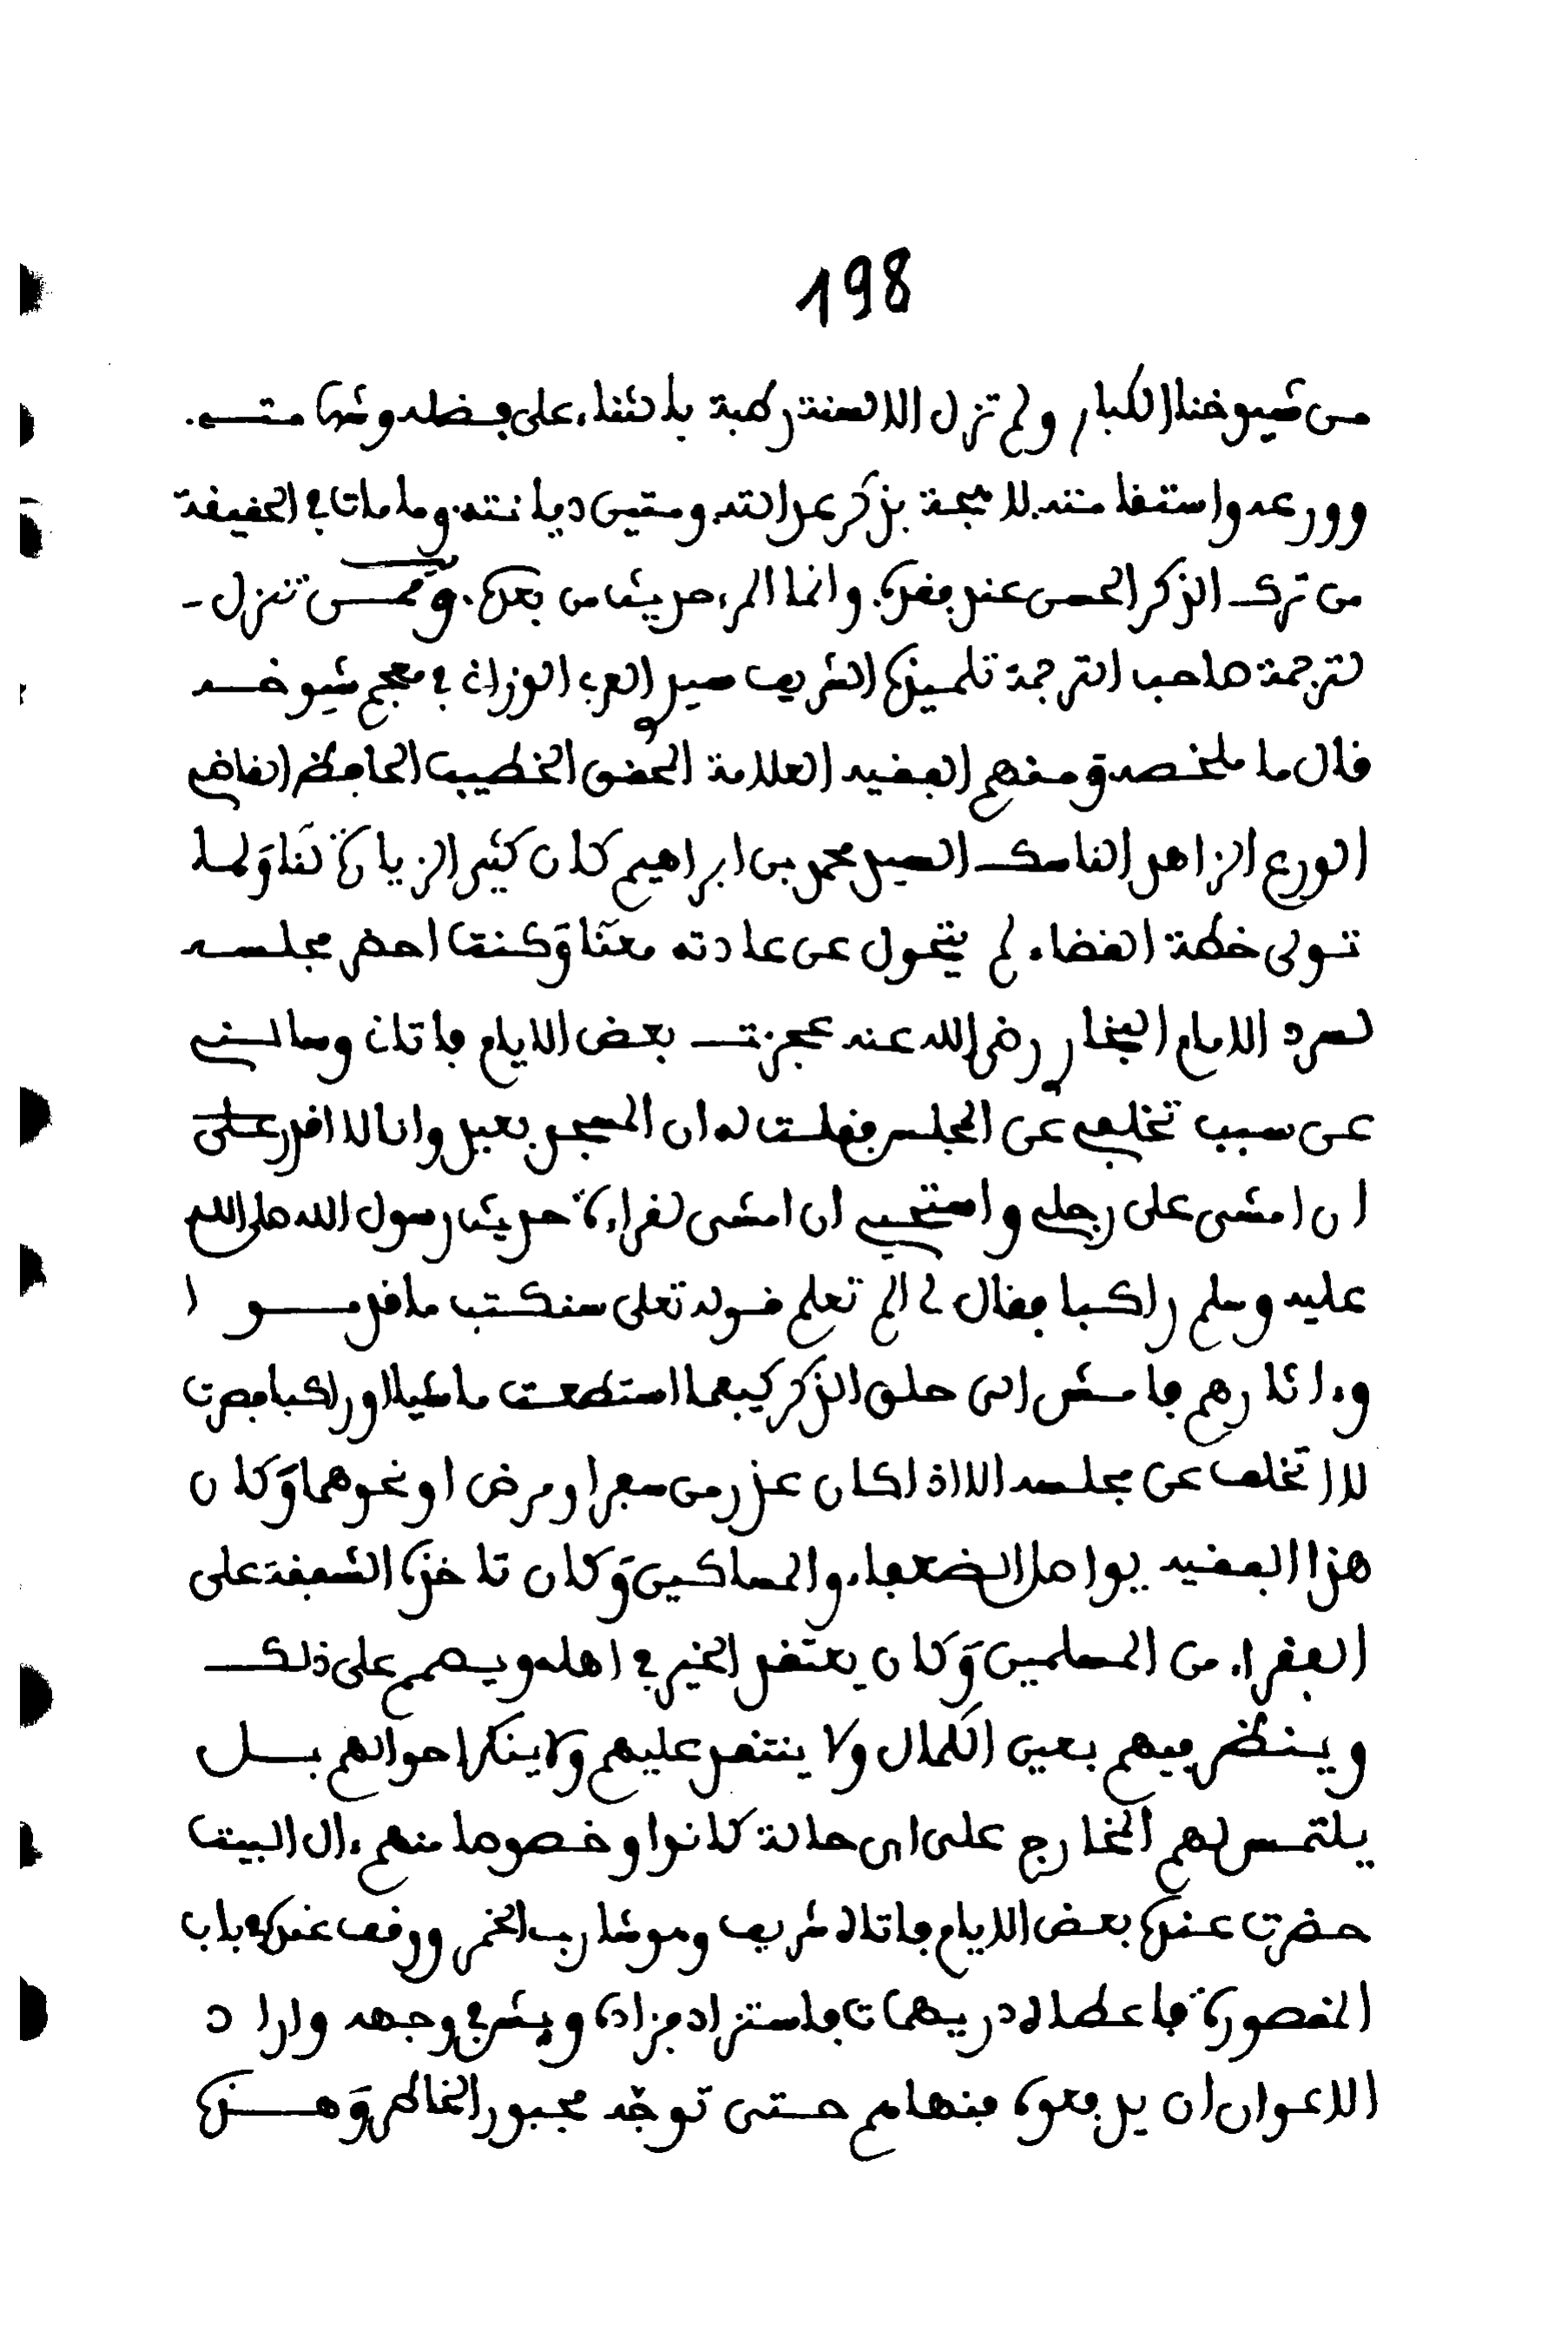 198
من شيوخنا الكبار ولم تزل الالسنة رطبة بالثناء على فضله وشهامته.
وورعه واستقامته. لاهجة بذكر عدالته. ومتين ديانته. وما مات في الحقيقة
من ترك الذكر الحسن عند فقده. وانما المرء حديث من بعده. وممـن تنزل -
لترجمة صاحب الترجمة تلميذه الشريف سيدي العربي الوزاني في معجم شيوخه
قال ما ملخصه ومنهم الفقيه العلامة المحقق الخطيب الحافظ القاضي
الورع الزاهد الناسك السيد محمد بن ابراهيم كان كثير الزيارة لنا ولما
تولى خطة القضاء لم يتحول عن عادته معنا وكنت احضر مجلسه
لسرد الامام البخاري رضي الله عنه عجزت بعض الايام فاتاني وسالني
عن سبب تخلفي عن المجلس فقلت له ان المسجد بعيد وانا لا اقدر على
ان امشي على رجلي واستحيي ان امشي لقراءة حديث رسول الله صلى الله
عليه وسلم راكبا فقال لي الم تعلم قوله تعلى سنكتب ما قدمـوا
وءاثارهم فامش الى حلق الذكر كيفما استطعت ماشيا او راكبا فصرت
لا اتخلف عن مجلسه الا اذا كان عذر من سفر او مرض او نحوهما وكان
هذا الفقيه يواصل الضعفاء والمساكين وكان تاخذه الشفقة على
الفقراء من المسلمين وكان يعتقد الخير في اهله ويصمم على ذلك
وينظر فيهم بعين الكمال ولا ينتقد عليهم ولا ينكر احوالهم بـل
يلتمس لهم المخارج على اي حالة كانوا وخصوصا منهم ءال البيت
حضرت عنده بعض الايام فاتاه شريف وهو شارب الخمر ووقف عنده في باب
المقصورة فاعطاه دريهمات فاستزاده فزاده وبش في وجهه واراد
الاعوان ان يدفعوه فنهاهم حتى توجه مجبور الخاطر وهـذه